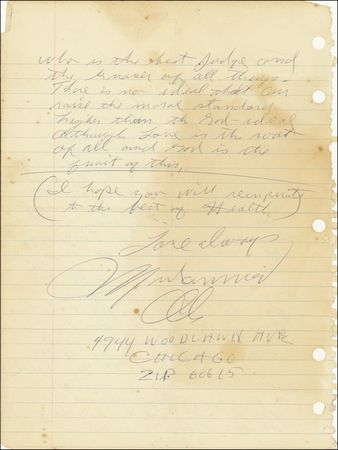 who is the best Judge and
the knower of all things.
There is no ideal that can
raise the moral standard
higher than the God-ideal
Although Love is the root
of all and God is the
fruit of this.
(I hope you will
to the best of Health)
Love always
Muhammad
Ali
4944 WOODLAWN AVE
CHICAGO
ZIP 60615